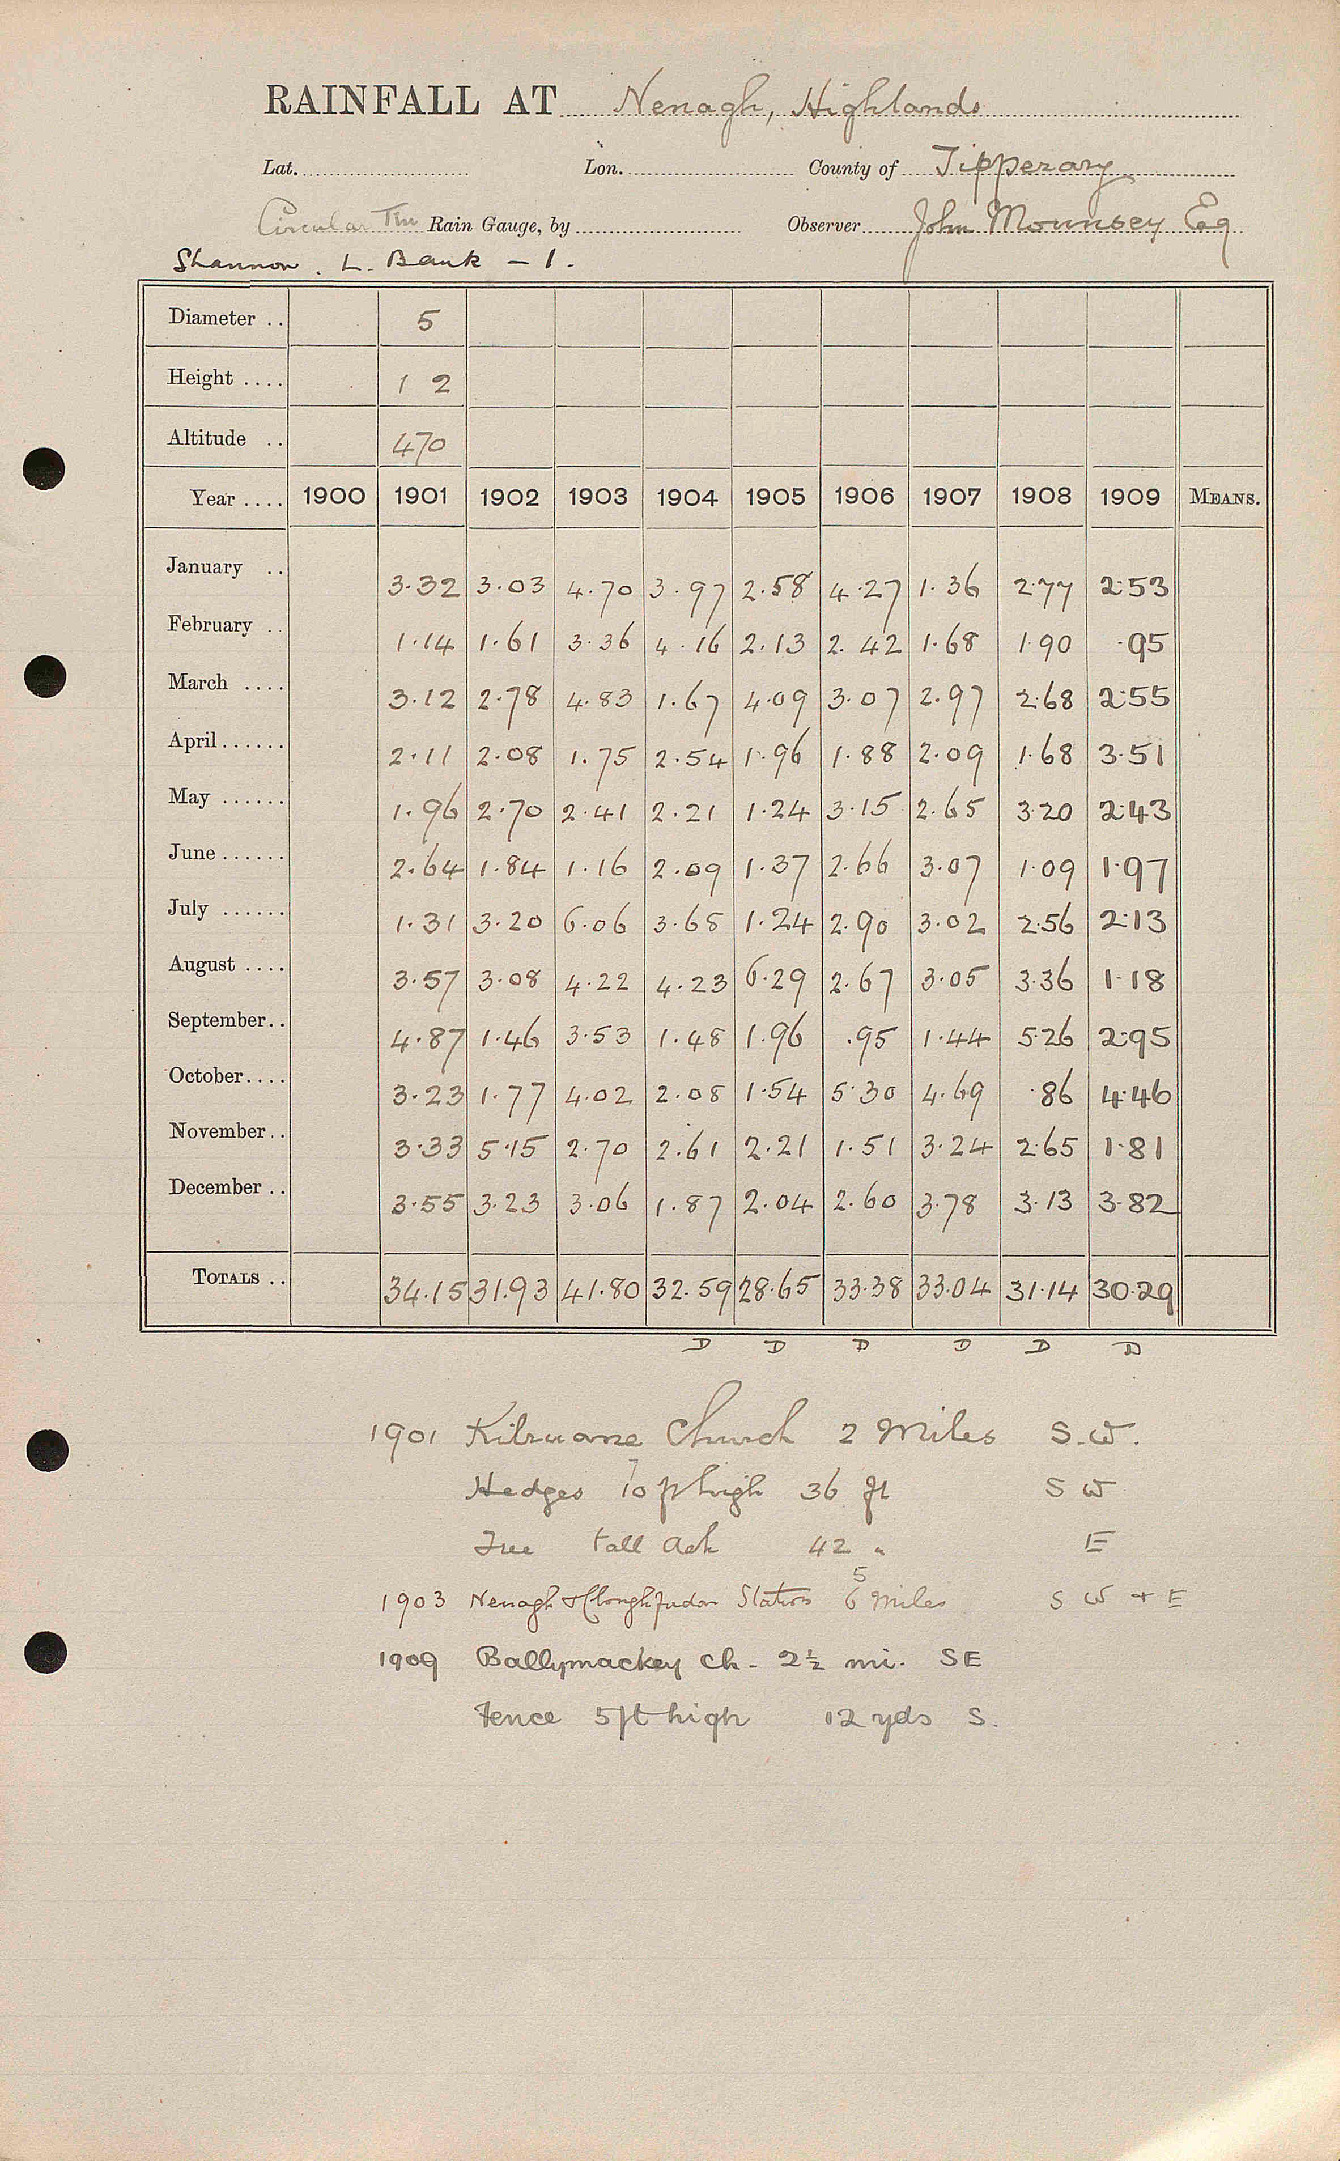 RAINFALL AT Nenagh, Highlands
Lat. Lon. County of Tipperary
Circular Tin Rain Gauge, by Observer John Mounsey Esq
Shannon. L. Bank - 1.
Diameter .. 5
Height .... 1 2
Altitude .. 470
Year .... 1900 1901 1902 1903 1904 1905 1906 1907 1908 1909 MEANS.
January .. 3.32 3.03 4.70 3.97 2.58 4.27 1.36 2.77 2.53
February .. 1.14 1.61 3.36 4.16 2.13 2.42 1.68 1.90 .95
March .... 3.12 2.78 4.83 1.67 4.09 3.07 2.97 2.68 2.55
April...... 2.11 2.08 1.75 2.54 1.96 1.88 2.09 1.68 3.51
May ...... 1.96 2.70 2.41 2.21 1.24 3.15 2.65 3.20 2.43
June...... 2.64 1.84 1.16 2.09 1.37 2.66 3.07 1.09 1.97
July ...... 1.31 3.20 6.06 3.65 1.24 2.90 3.02 2.56 2.13
August .... 3.57 3.08 4.22 4.23 6.29 2.67 3.05 3.36 1.18
September.. 4.87 1.46 3.53 1.48 1.96 .95 1.44 5.26 2.95
October.... 3.23 1.77 4.02 2.08 1.54 5.30 4.69 .86 4.46
November.. 3.33 5.15 2.70 2.61 2.21 1.51 3.24 2.65 1.81
December .. 3.55 3.23 3.06 1.87 2.04 2.60 3.78 3.13 3.82
TOTALS .. 34.15 31.93 41.80 32.59 28.65 33.38 33.04 31.14 30.29
D D D D D D
1901 Kilruane Church 2 Miles S.W.
Hedges 10 ft high 36 ft S W
Tree tall Ash 42 " E
5
1903 Nenagh & Cloughjordan Station 6 Miles S W + E
1909 Ballymackey Ch - 2½ mi. SE
Fence 5ft high 12 yds S.